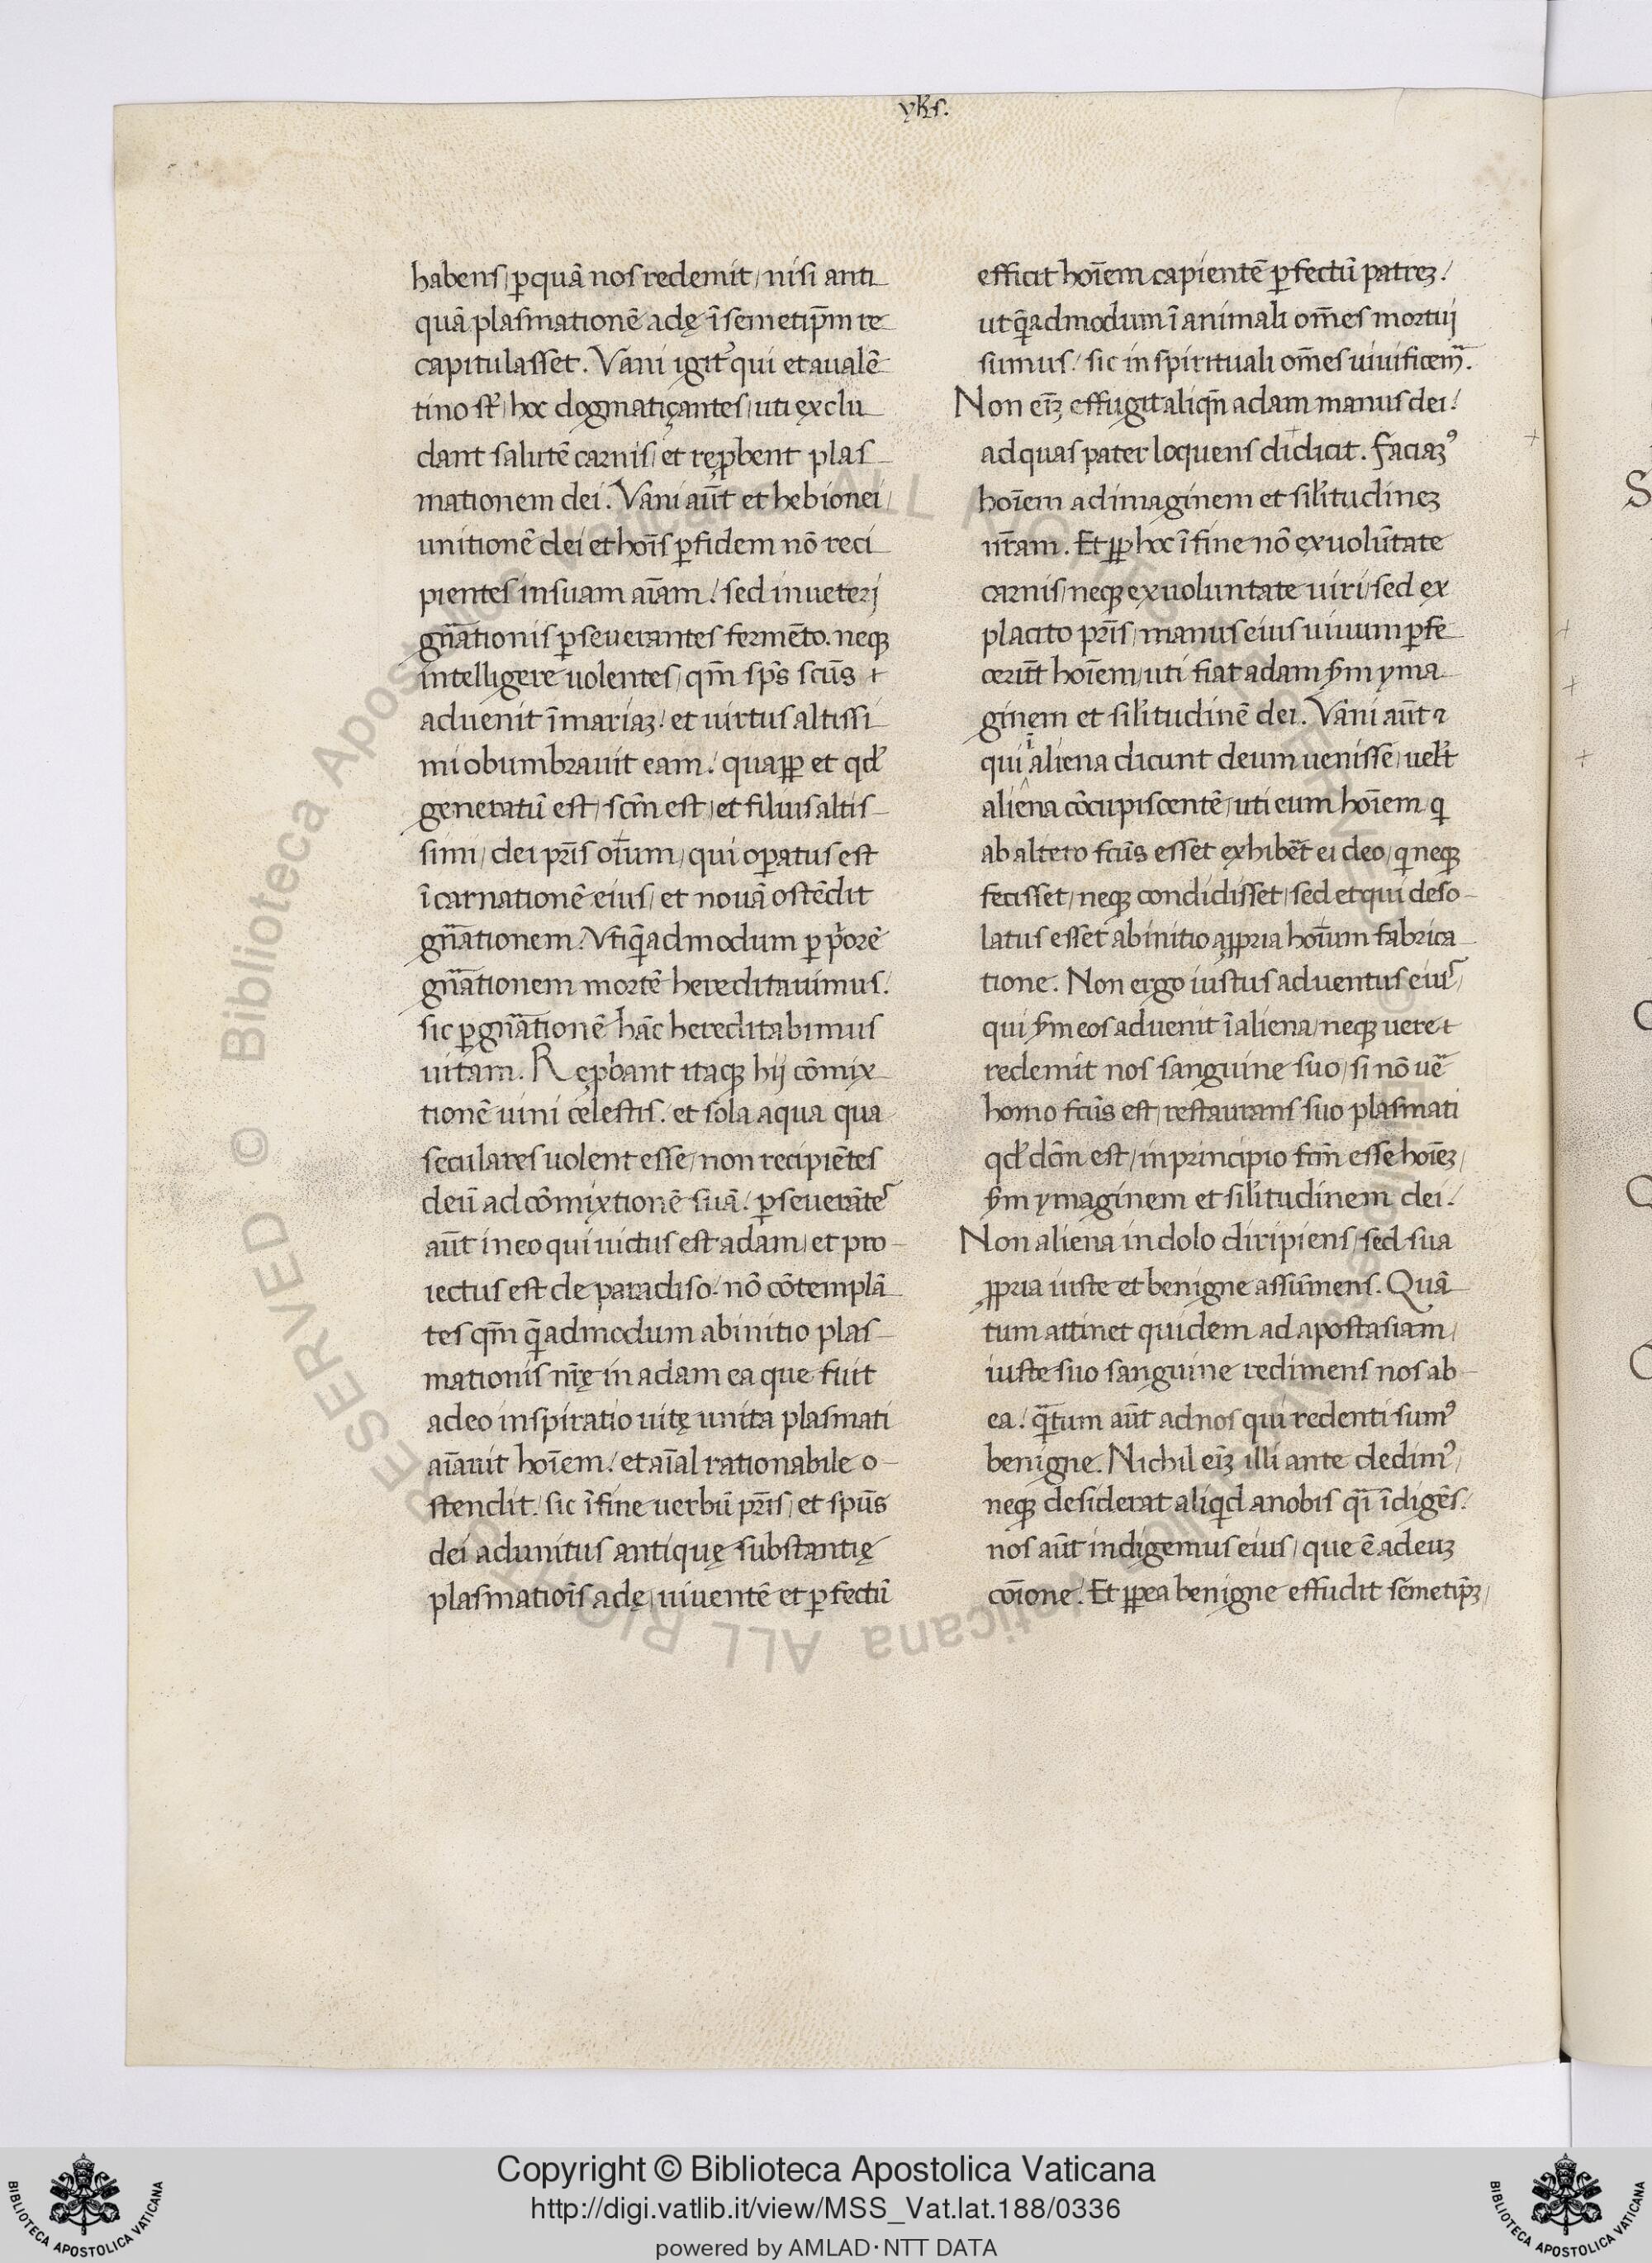 yħs.
habens, ꝑquā nos redemit, nisi anti
quā plasmationē adę ī semetip̄m re
capitulasset. Vani igit᷑ qui et a ualē
tino st̄, hoc dogmatiçantes, uti exclu
dant salutē carnis, et rep̱bent plas
mationem dei. Vani aūt et hebionei,
unitionē dei et hoīs ꝑ fidem nō reci
pientes in suam aīam! sed in ueteri
gn̄ationis ꝑseuerantes fermēto. neqꝫ
intelligere uolentes, qm̄ sp̄s sc̄us
aduenit ī mariaꝫ! et uirtus altissi
mi obumbrauit eam! quaꝓp et qd̓
generatū est, sc̄m est, et filius altis
simi, dei pr̄is oīum, qui oꝑatus est
īcarnationē eius, et nouā ostēdit
gn̄ationem. Vti q̄admodum ꝑ p̓orē
gn̄ationem mortē hereditauimus.
sic ꝑ gn̄ationē hāc hereditabimus
uitam. Rep̱bant itaqꝫ hij cōmix
tionē uini celestis. et sola aqua qua
seculares uolent esse, non recipiētes
deū ad cōmixtionē suā! ꝑseuerātes
aūt in eo qui uictus est adam, et pro
iectus est de paradiso. nō cōtemplā
tes qm̄ q̄admodum ab initio plas
mationis nr̄ę in adam ea que fuit
a deo inspiratio uitę unita plasmati
aīauit hoīem! et aīal rationabile o
stendit. sic ī fine uerbū pr̄is, et spūs
dei adunitus antiquę substantię
plasmatiōis adę, uiuentē et ꝑfectū
efficit hoīem capientē ꝑfectū patreꝫ!
ut q̄admodum ī animali om̄es mortuj
sumus! sic in spirituali om̄es uiuificem᷑.
Non eīꝫ effugit aliqn̄ adam manus dei!
ad quas pater loquens didicit. Faciaꝫꝰ
hoīem ad imaginem et sili̓tudineꝫ
nr̄am. Et ꝓp hoc ī fine nō ex uolūtate
carnis, neqꝫ ex uoluntate uiri, sed ex
placito pr̄is, manus eius uiuum ꝑfe
cerūt hoīem, uti fiat adam sm̄ yma
ginem et sili̓tudinē dei. Vani aūt ⁊
qui ī aliena dicunt deum uenisse, uelt̓
aliena cōcupiscentē, uti eum hoīem q
ab altero fc̄us esset exhibēt ei deo, q neqꝫ
fecisset, neqꝫ condidisset, sed et qui deso
latus esset ab initio a ꝓpria hoīum fabrica
tione. Non ergo iustus aduentus eius,
qui sm̄ eos aduenit ī aliena, neqꝫ uere
redemit nos sanguine suo, si nō ue᷑
homo fc̄us est, restaurans suo plasmati
qd̓ dc̄m est, in principio fc̄m esse hoīeꝫ,
sm̄ ymaginem et sili̓tudinem dei!
Non aliena in dolo diripiens, sed sua
ꝓpria iuste et benigne assūmens. Quā
tum attinet quidem ad apostasiam,
iuste suo sanguine redimens nos ab
ea! q̄tum aūt ad nos qui redenti sumꝰ
benigne. Nichil eīꝫ illi ante dedimꝰ,
neqꝫ desiderat aliqd a nobis q̄i īdigēs.
nos aūt indigemus eius, que ē ad euꝫ
coīone! Et ꝓp ea benigne effudit semetip̄ꝫ,
Copyright © Biblioteca Apostolica Vaticana
http://digi.vatlib.it/view/MSS_Vat.lat.188/0336
powered by AMLAD·NTT DATA